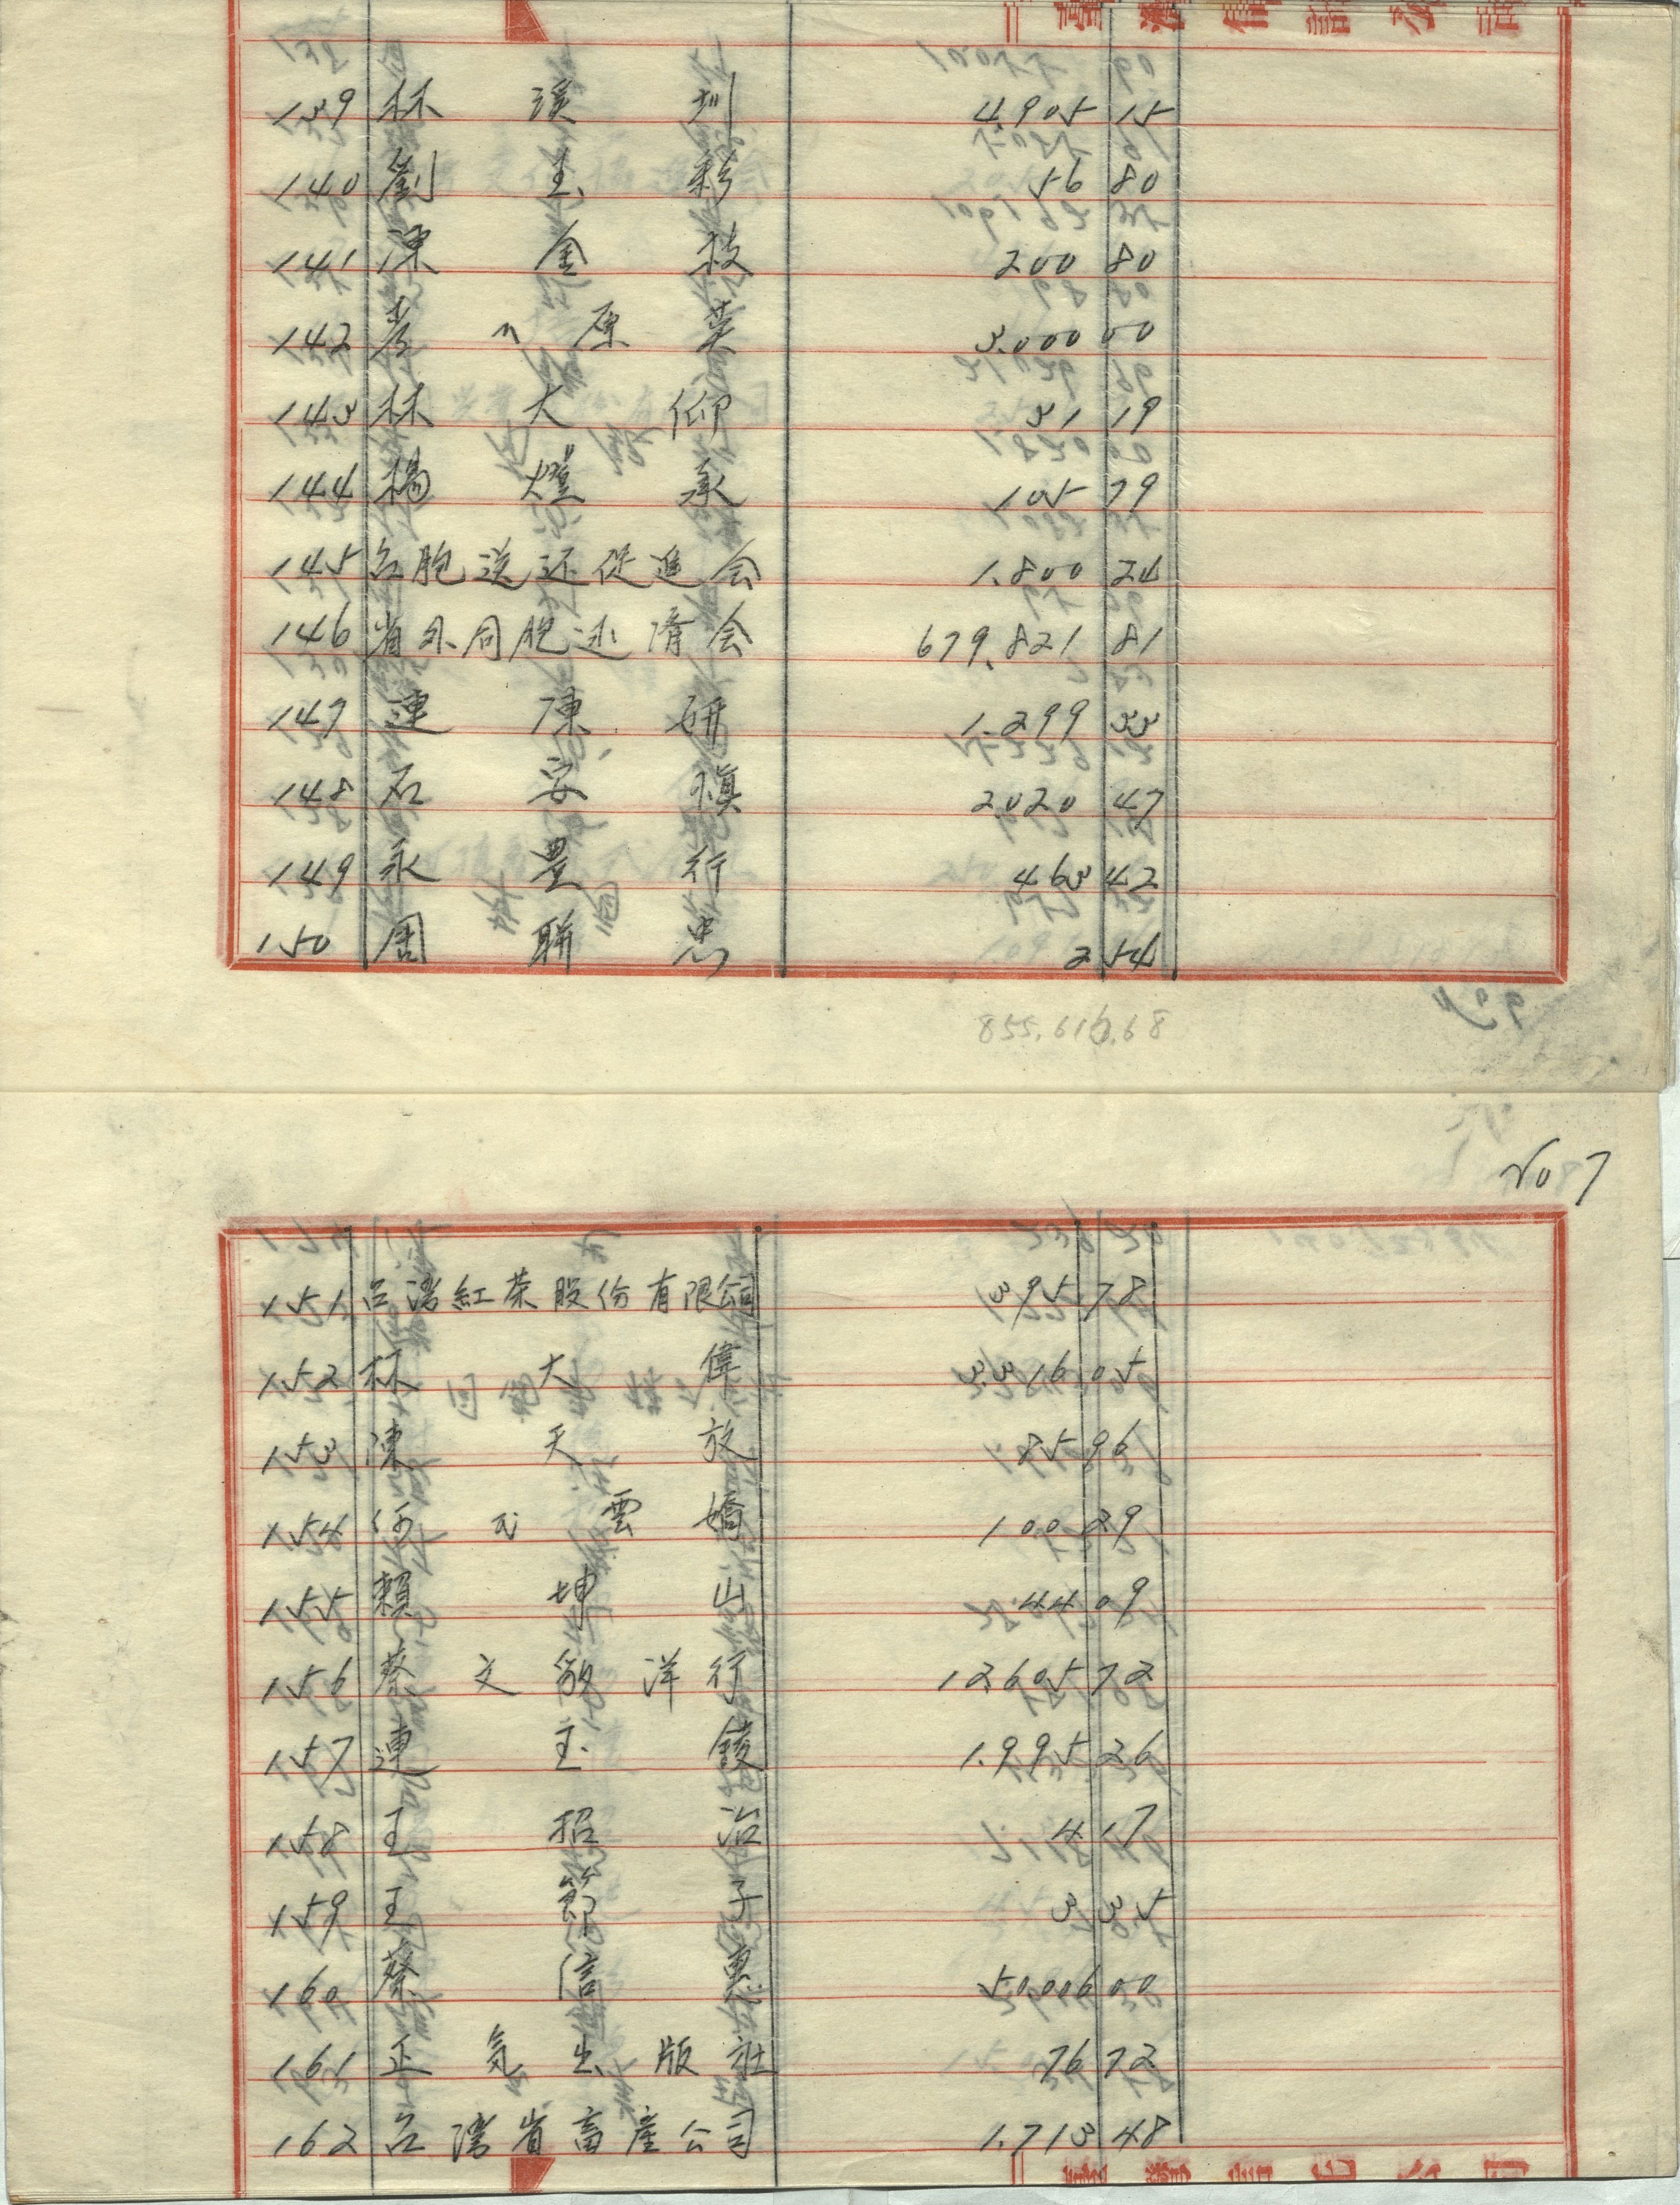 139 林溪圳 4,905 15
140 劉玉彩 56 80
141 陳金枝 200 80
142 彦〃原英 3,000 00
143 林大仰 31 19
144 楊燈承 105 79
145 台胞送还促進会 1,800 24
146 省外同胞 会 679,821 81
147 連陳研 1,299 33
148 石安慎 2020 47
149 永豊行 463 42
150 周聯忠 2 54
855,616.68
No 7
151 台湾紅茶股份有限公司 395 78
152 林大偉 3,316 05
153 陳天放 85 96
154 雲嬌 100 29
155 賴坤山 44 09
156 蔡文敏洋行 12605 72
157 連玉鍐 1,995 26
158 王招治 4 17
159 王節子 3 35
160 蔡信惠 50006 00
161 正気出版社 76 72
162 台湾省畜產公司 1,713 48